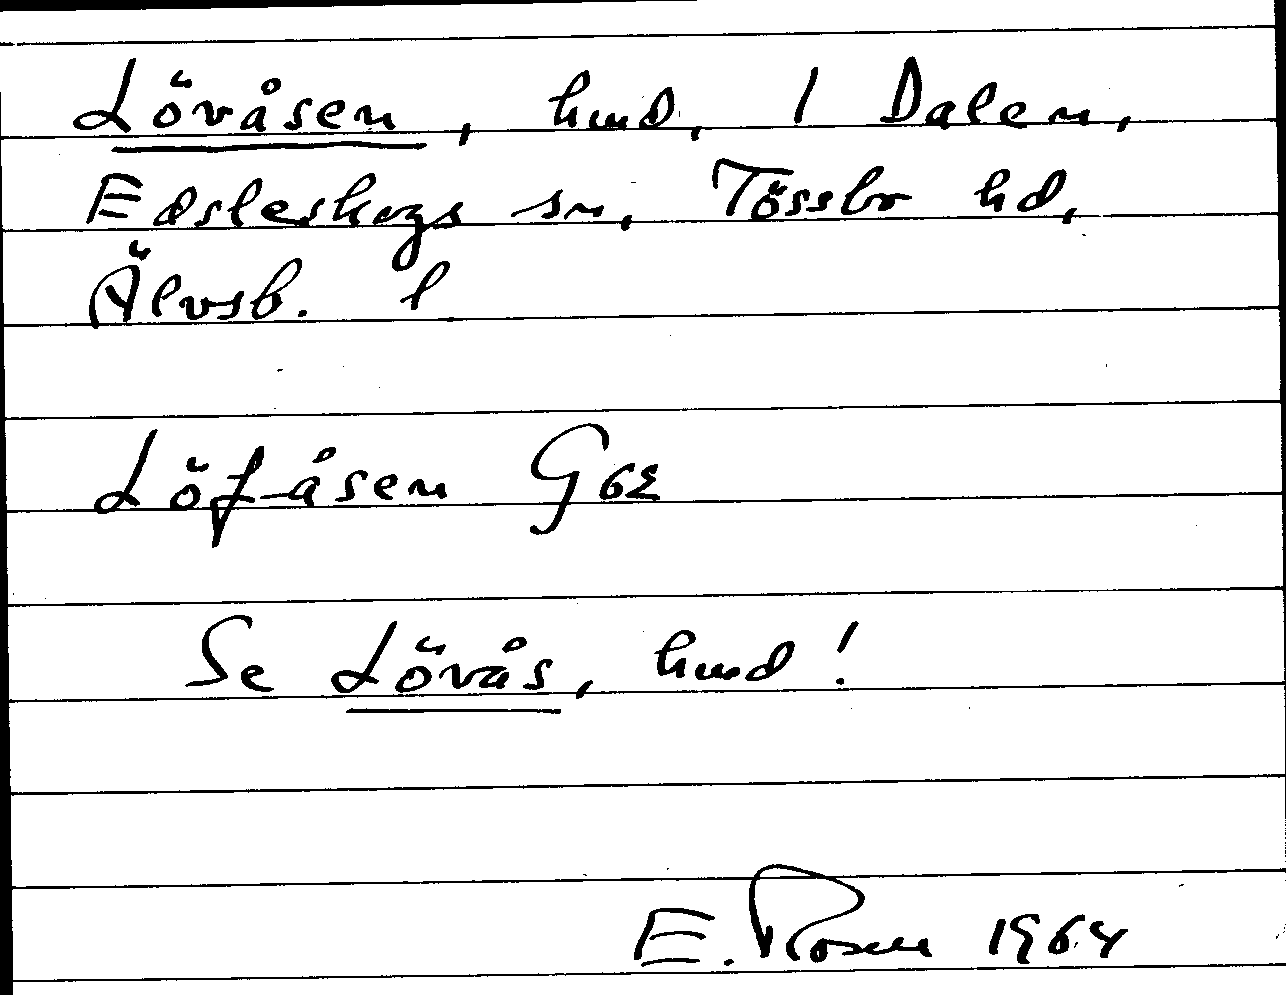 Lövåsen, hmd, 1 Dalen,
Edsleskogs sn, Tössbo hd,
Älvsb. l
Löf-åsen G62
Se Lövås, hmd!
E. Rosen 1964